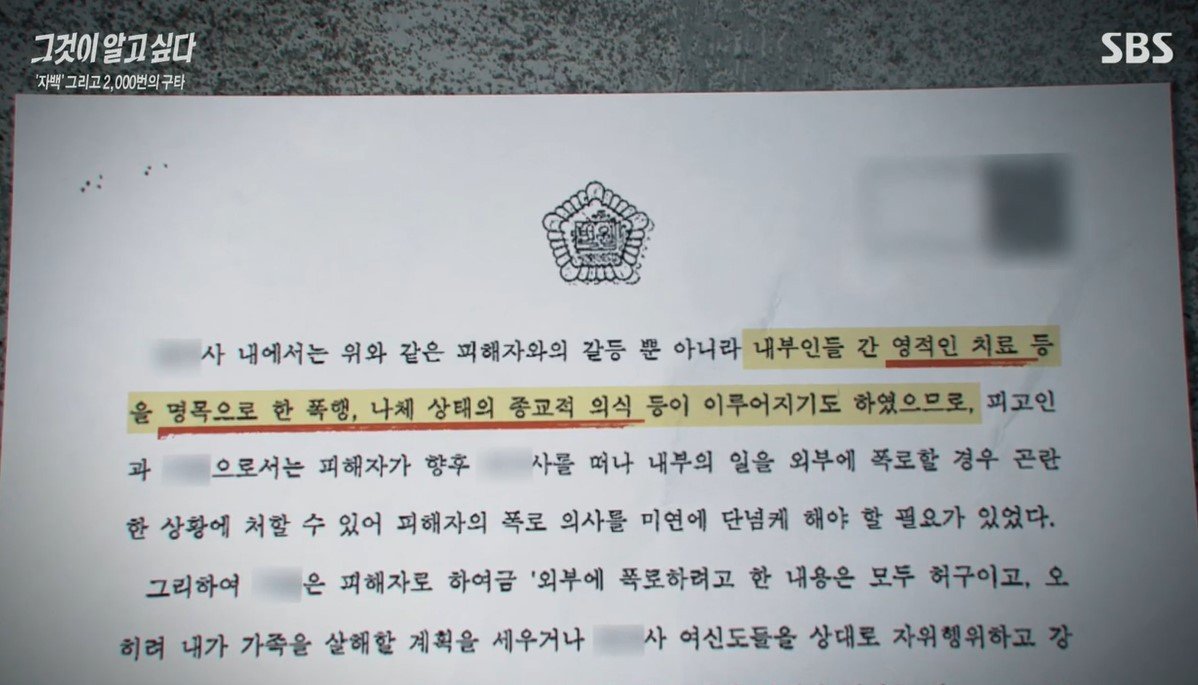 그것이 알고 싶다
SBS
'자백' 그리고 2,000번의 구타
법원
사 내에서는 위와 같은 피해자와의 갈등 뿐 아니라 내부인들 간 영적인 치료 등
을 명목으로 한 폭행, 나체 상태의 종교적 의식 등이 이루어지기도 하였으므로, 피고인
과 으로서는 피해자가 향후 사를 떠나 내부의 일을 외부에 폭로할 경우 곤란
한 상황에 처할 수 있어 피해자의 폭로 의사를 미연에 단념케 해야 할 필요가 있었다.
그리하여 은 피해자로 하여금 '외부에 폭로하려고 한 내용은 모두 허구이고, 오
히려 내가 가족을 살해할 계획을 세우거나 사 여신도들을 상대로 자위행위하고 강